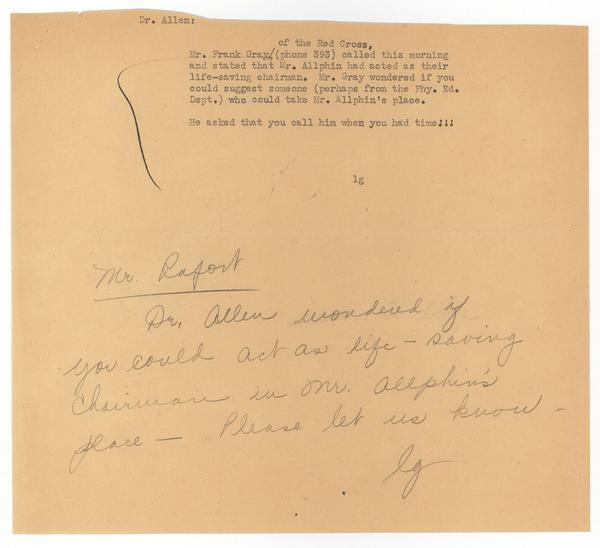 Dr. Allen:
of the Red Cross,
Mr. Frank Gray/(phone 393) called this morning
and stated that Mr. Allphin had acted as their
life-saving chairman. Mr. Gray wondered if you
could suggest someone (perhaps from the Phy. Ed.
Dept.) who could take Mr. Allphin's place.
He asked that you call him when you had time!!!
lg
Mr. Rafort
Dr. Allen wondered if
you could act as life - saving
chairman in Mr. Allphin's
place — Please let us know -
lg